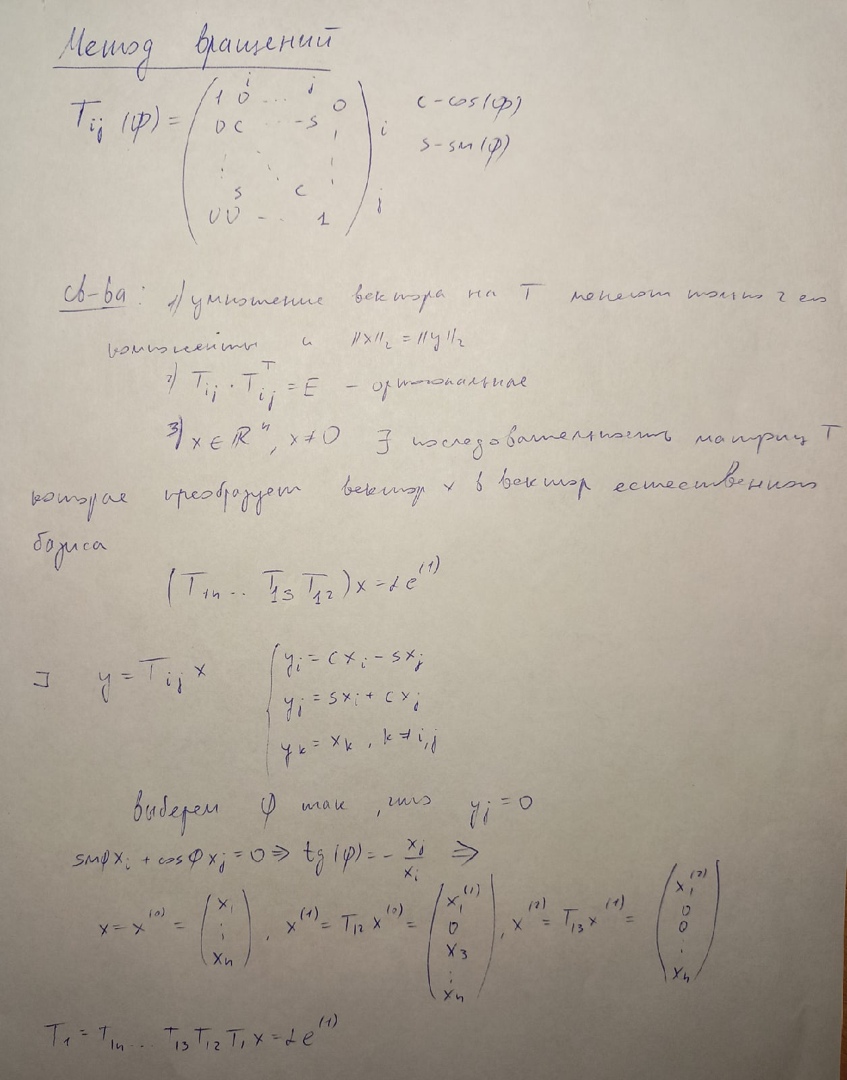 Метод вращений
i j
T_ij (φ) = ( 1 0 ... 0 i c - cos(φ)
0 c ... -s s - sin(φ)
s c j
0 0 - .. 1 )
св-ва: 1) умножение вектора на T меняет только 2 его
компоненты и ||x||_2 = ||y||_2
2) T_ij · T_ij^T = E - ортогональное
3) x ∈ R^n, x ≠ 0 ∃ последовательность матриц T
которое преобразует вектор x в вектор естественного
базиса
(T_1n .. T_13 T_12) x = αe^(1)
∃ y = T_ij x { y_i = c x_i - s x_j
y_j = s x_i + c x_j
y_k = x_k, k ≠ i,j
выберем φ так, что y_j = 0
sinφ x_i + cosφ x_j = 0 ⇒ tg(φ) = - x_j / x_i ⇒
x = x^(0) = ( x_1 ⋮ x_n ), x^(1) = T_12 x^(0) = ( x_1^(1) 0 x_3 ⋮ x_n ), x^(2) = T_13 x^(1) = ( x_1^(2) 0 0 ⋮ x_n )
T_1 = T_1n ... T_13 T_12 T_1 x = αe^(1)